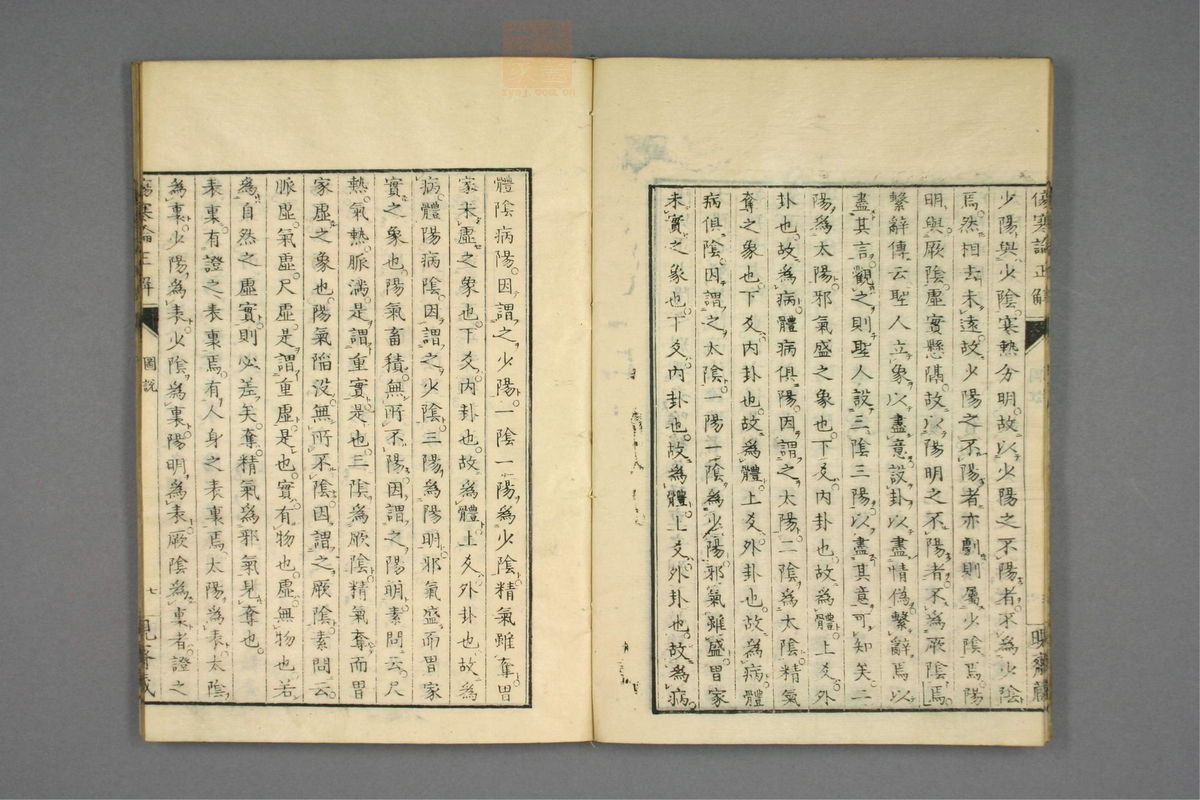 傷寒論正解
少陽與少陰寒熱分明故以少陽之不陽者不爲少陰
焉然相去未遠故少陽之不陽者亦劇則屬少陰焉陽
明與厥陰虛實懸隔故以陽明之不陽者不爲厥陰焉
繫辭傳云聖人立象以盡意設卦以盡情僞繫辭焉以
盡其言觀之則聖人設三陰三陽以盡其意可知矣二
陽爲太陽邪氣盛之象也下爻内卦也故爲體上爻外
卦也故爲病體病俱陽因謂之太陽二陰爲太陰精氣
奪之象也下爻内卦也故爲體上爻外卦也故爲病體
病俱陰因謂之太陰一陽一陰爲少陽邪氣雖盛胃家
未實之象也下爻内卦也故爲體上爻外卦也故爲病
體陰病陽因謂之少陽一陰一陽爲少陰精氣雖奪胃
家未虛之象也下爻内卦也故爲體上爻外卦也故爲
病體陽病陰因謂之少陰三陽爲陽明邪氣盛而胃家
實之象也陽氣畜積無所不陽因謂之陽明素問云尺
熱氣熱脈滿是謂重實是也三陰爲厥陰精氣奪而胃
家虛之象也陽氣陷没無所不陰因謂之厥陰素問云
脈虛氣虛尺虛是謂重虛是也實有物也虛無物也若
爲自然之虛實則必差矣奪精氣爲邪氣見奪也
表裏有證之表裏焉有人身之表裏焉太陽爲表太陰
爲裏少陽爲表少陰爲裏陽明爲表厥陰爲裏者證之
傷寒論正解
圖説
七